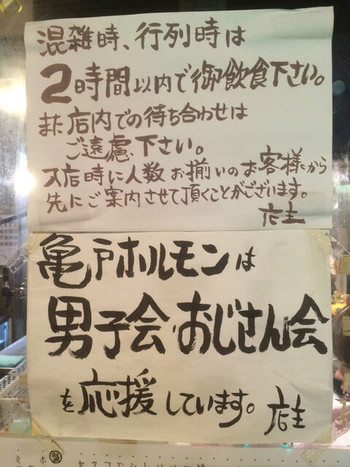 混雑時、行列時は
2時間以内で御飲食下さい。
また店内での待ち合わせは
ご遠慮下さい。
入店時に人数お揃いのお客様から
先にご案内させて頂くことがございます。
店主
亀戸ホルモンは
男子会・おじさん会
を応援しています。店主